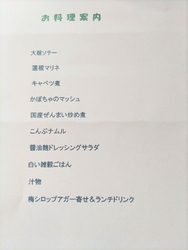 お料理案内
大根ソテー
蓮根マリネ
キャベツ煮
かぼちゃのマッシュ
国産ぜんまい炒め煮
こんぶナムル
醤油麹ドレッシングサラダ
白い雑穀ごはん
汁物
梅シロップアガー寄せ＆ランチドリンク